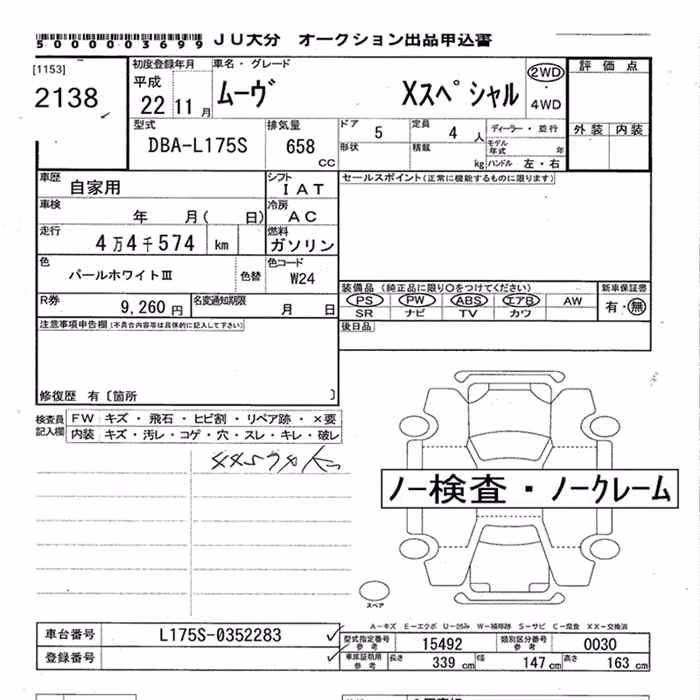 5000003699 JU大分 オークション出品申込書
[1153]
2138
初度登録年月
平成
22 11月
車名・グレード
ムーヴ Xスペシャル
2WD
・
4WD
評価点
外装 内装
型式
DBA-L175S
排気量
658
CC
ドア 5
定員 4 人
ディーラー・並行
形状
積載 kg
モデル年式 年
ハンドル 左・右
車歴 自家用
シフト IAT
セールスポイント(正常に機能するものに限ります)
車検 年 月( 日)
冷房 AC
走行 4万4千574 km
燃料 ガソリン
色 パールホワイトⅢ 色替
色コード W24
装備品(純正品に限り○をつけてください)
新車保証書
PS PW ABS エアB AW
有・無
SR ナビ TV カワ
R券 9,260円
名変通知期限 月 日
後日品
注意事項申告欄(不具合内容等は具体的に記入して下さい)
修復歴 有〔箇所 〕
検査員記入欄
FW キズ・飛石・ヒビ割・リペア跡・×要
内装 キズ・汚レ・コゲ・穴・スレ・キレ・破レ
44574Km
ノー検査・ノークレーム
スペア
A-キズ E-エクボ U-凹み W-補修跡 S-サビ C-腐食 XX-交換済
車台番号 L175S-0352283
型式指定番号 参考 15492
類別区分番号 参考 0030
登録番号
車庫証明用 参考
長さ 339 cm
幅 147 cm
高さ 163 cm